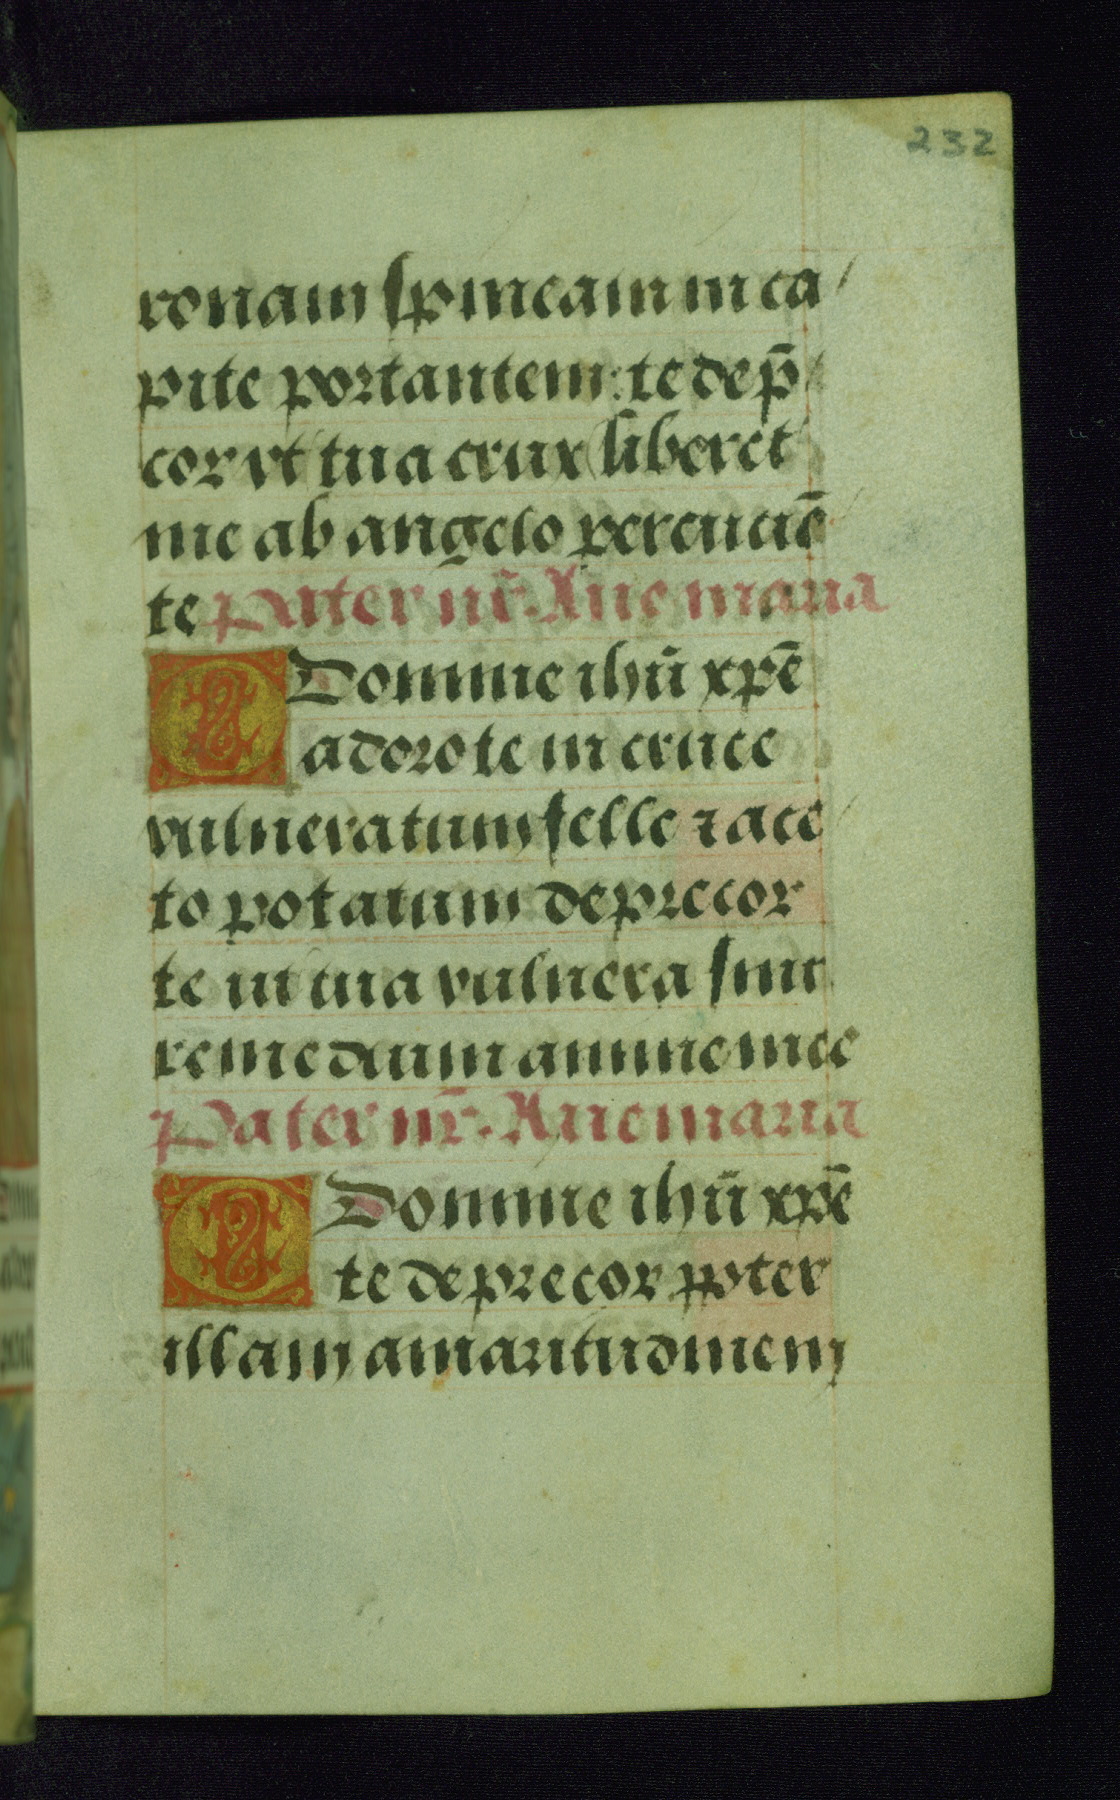 232
ronam spineam in ca
pite portantem: te dep̄
cor vt tua crux liberet
me ab angelo percucie̅
te Pater nr̄. Aue maria
O Domine ihū xpē
adoro te in cruce
vulneratum felle ⁊ ace
to potatum deprecor
te ut tua vulnera sint
remedium anime mee
Pater nr̄. Aue maria
O Domine ihū xpē
te deprecor ppter
illam amaritudinem